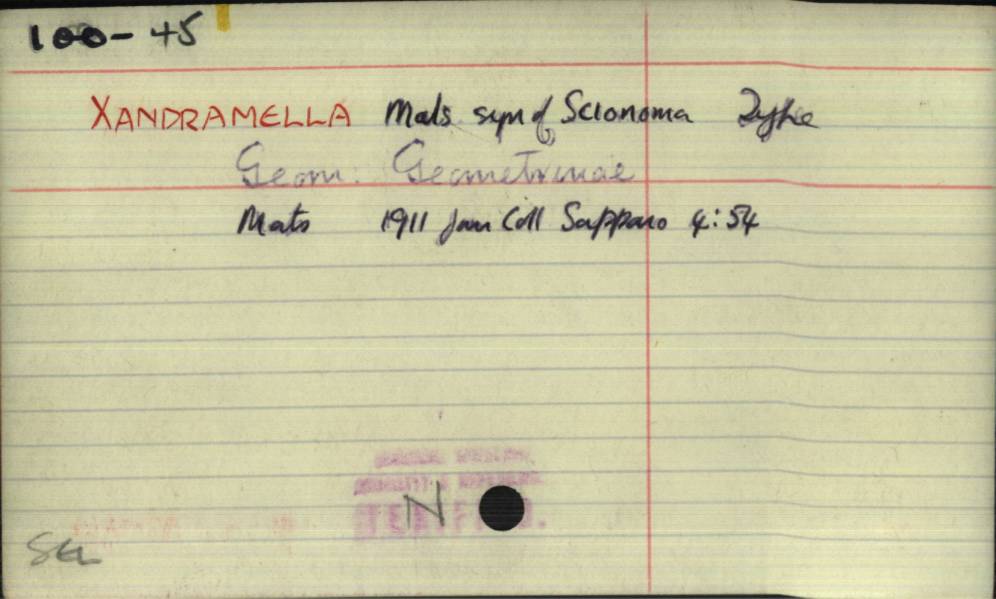 100-45
XANDRAMELLA Mats syn of Scionoma
Geom: Geometrinae
Mats 1911 Jour Coll Sapporo 4:54
N